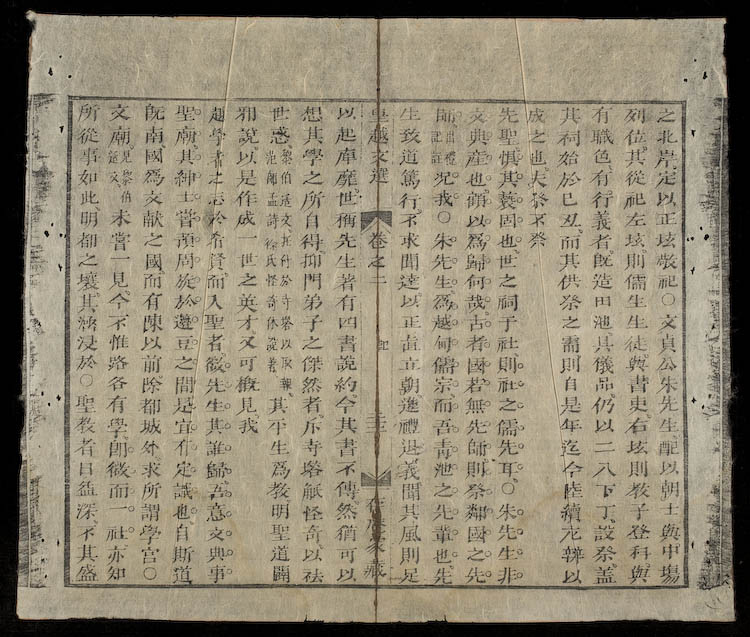 之北岸定以正坛敬祀○文貞公朱先生配以朝士與中場
列位其從祀左坛則儒生生徒與書史右坛則教子登科與
有職色有行義者旣造田池其儀品仍以二八下丁設祭蓋
其祠始於己丑而其供祭之需則自是年迄今陸續充辨以
成之也夫祭不祭
先聖愼其襃固也世之祠于社則社之儒先耳○朱先生非
文典產也顧以爲歸何哉古者國若無先師則祭鄰國之先
師出禮記註况我○朱先生爲越甸儒宗而吾靑池之先輩也先
生致道篤行不求聞達以正直立朝進禮退義聞其風則足
皇越文選 卷之二 記 三 存庵家藏
以起庳庬世稱先生著有四書說約今其書不傳然猶可以
想其學之所自得抑門弟子之傑然者斥寺塔觗怪奇以祛
世惑黎伯适文尤斥於寺塔以取報范師孟詩徐氏怪奇休說著其平生爲教明聖道闢
邪說以是作成一世之英才又可槪見我
趨學者之志於希賢而入聖者微先生其誰歸吾意文典事
聖廟其紳士嘗預周旋於籩豆之間是宜作定議也自斯道
旣南國爲文獻之國而有陳以前除都城外求所謂學宮○
文廟見黎伯适文未嘗一見今不惟路各有學卽微而一社亦知
所從事如此明都之壤其涵浸於○聖教者日益深不其盛